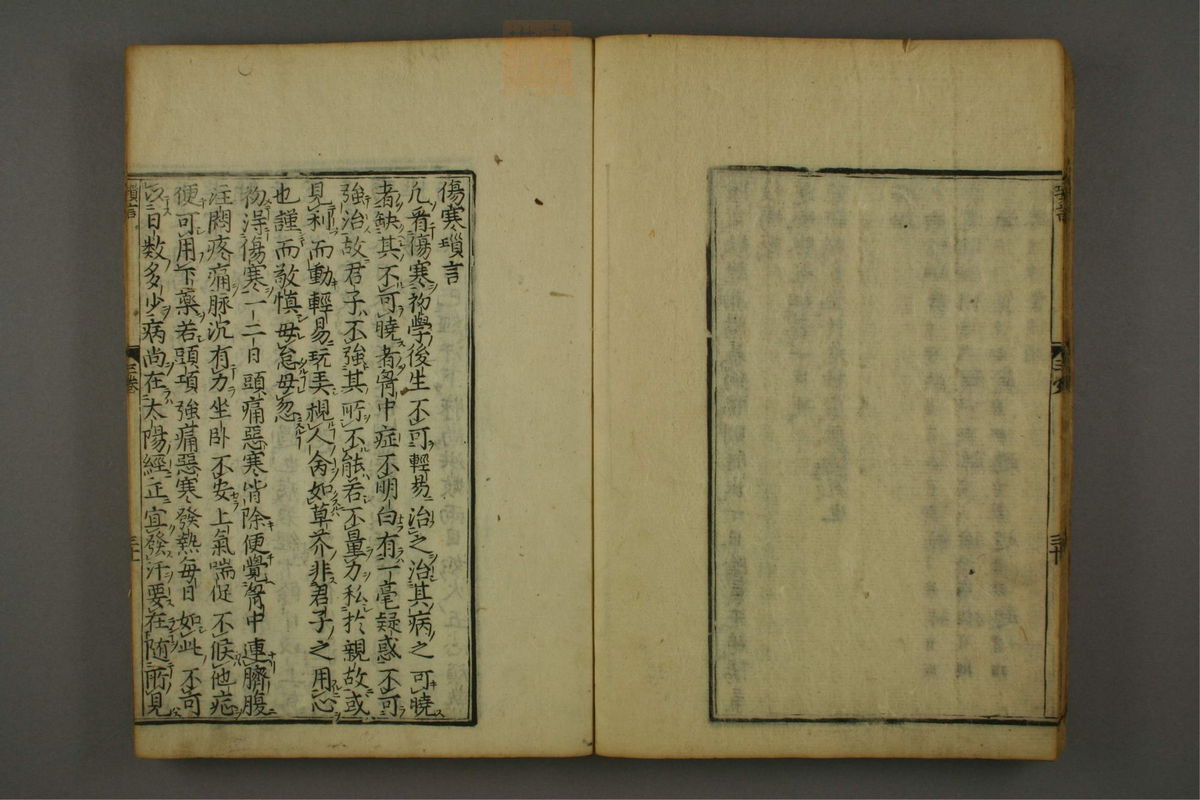 傷寒瑣言
凡看傷寒初學後生不可輕易治之治其病之可曉
者缺其不可曉者胷中症不明白有一毫疑惑不可
強治故君子不強其所不能若不量力私於親故或
見利而動輕易玩弄視人命如草芥非君子之用心
也謹而敬慎毋怠毋忽
初得傷寒一二日頭痛惡寒皆除便覺胷中連臍腹
注悶疼痛脉沉有力坐卧不安上氣喘促不候他症
便可用下藥若頭項強痛惡寒發熱每日如此不可
以日数多少病尚在太陽經正宜發汗要在随所見
瑣言
三卷
三十一